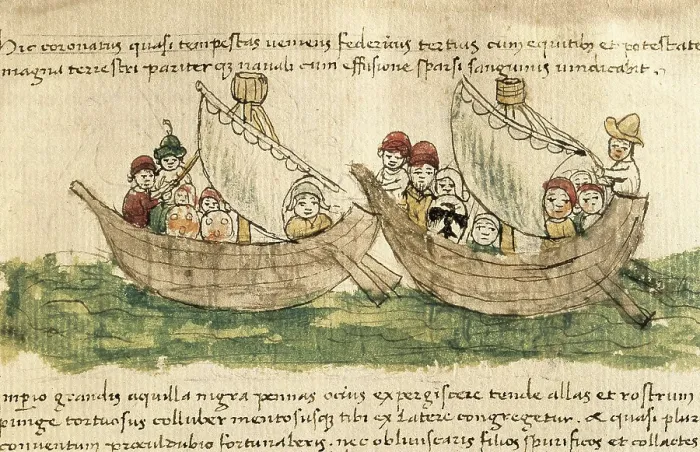 Hic coronatus quasi tempestas uemens federicus tertius cum equitibus et potestate
magna terrestri pariter qȝ nauali cum effusione sparsi sanguinis uindicabit .
mperio grandis aquilla nigra pennas ocius expergiscere tende allas et rostrum
punge tortuosus colluber mentosusqȝ tibi ex latere congregetur . & quasi plur
conuentum proculdubio fortunaberis . nec obliuiscaris filios spurificos et collactes